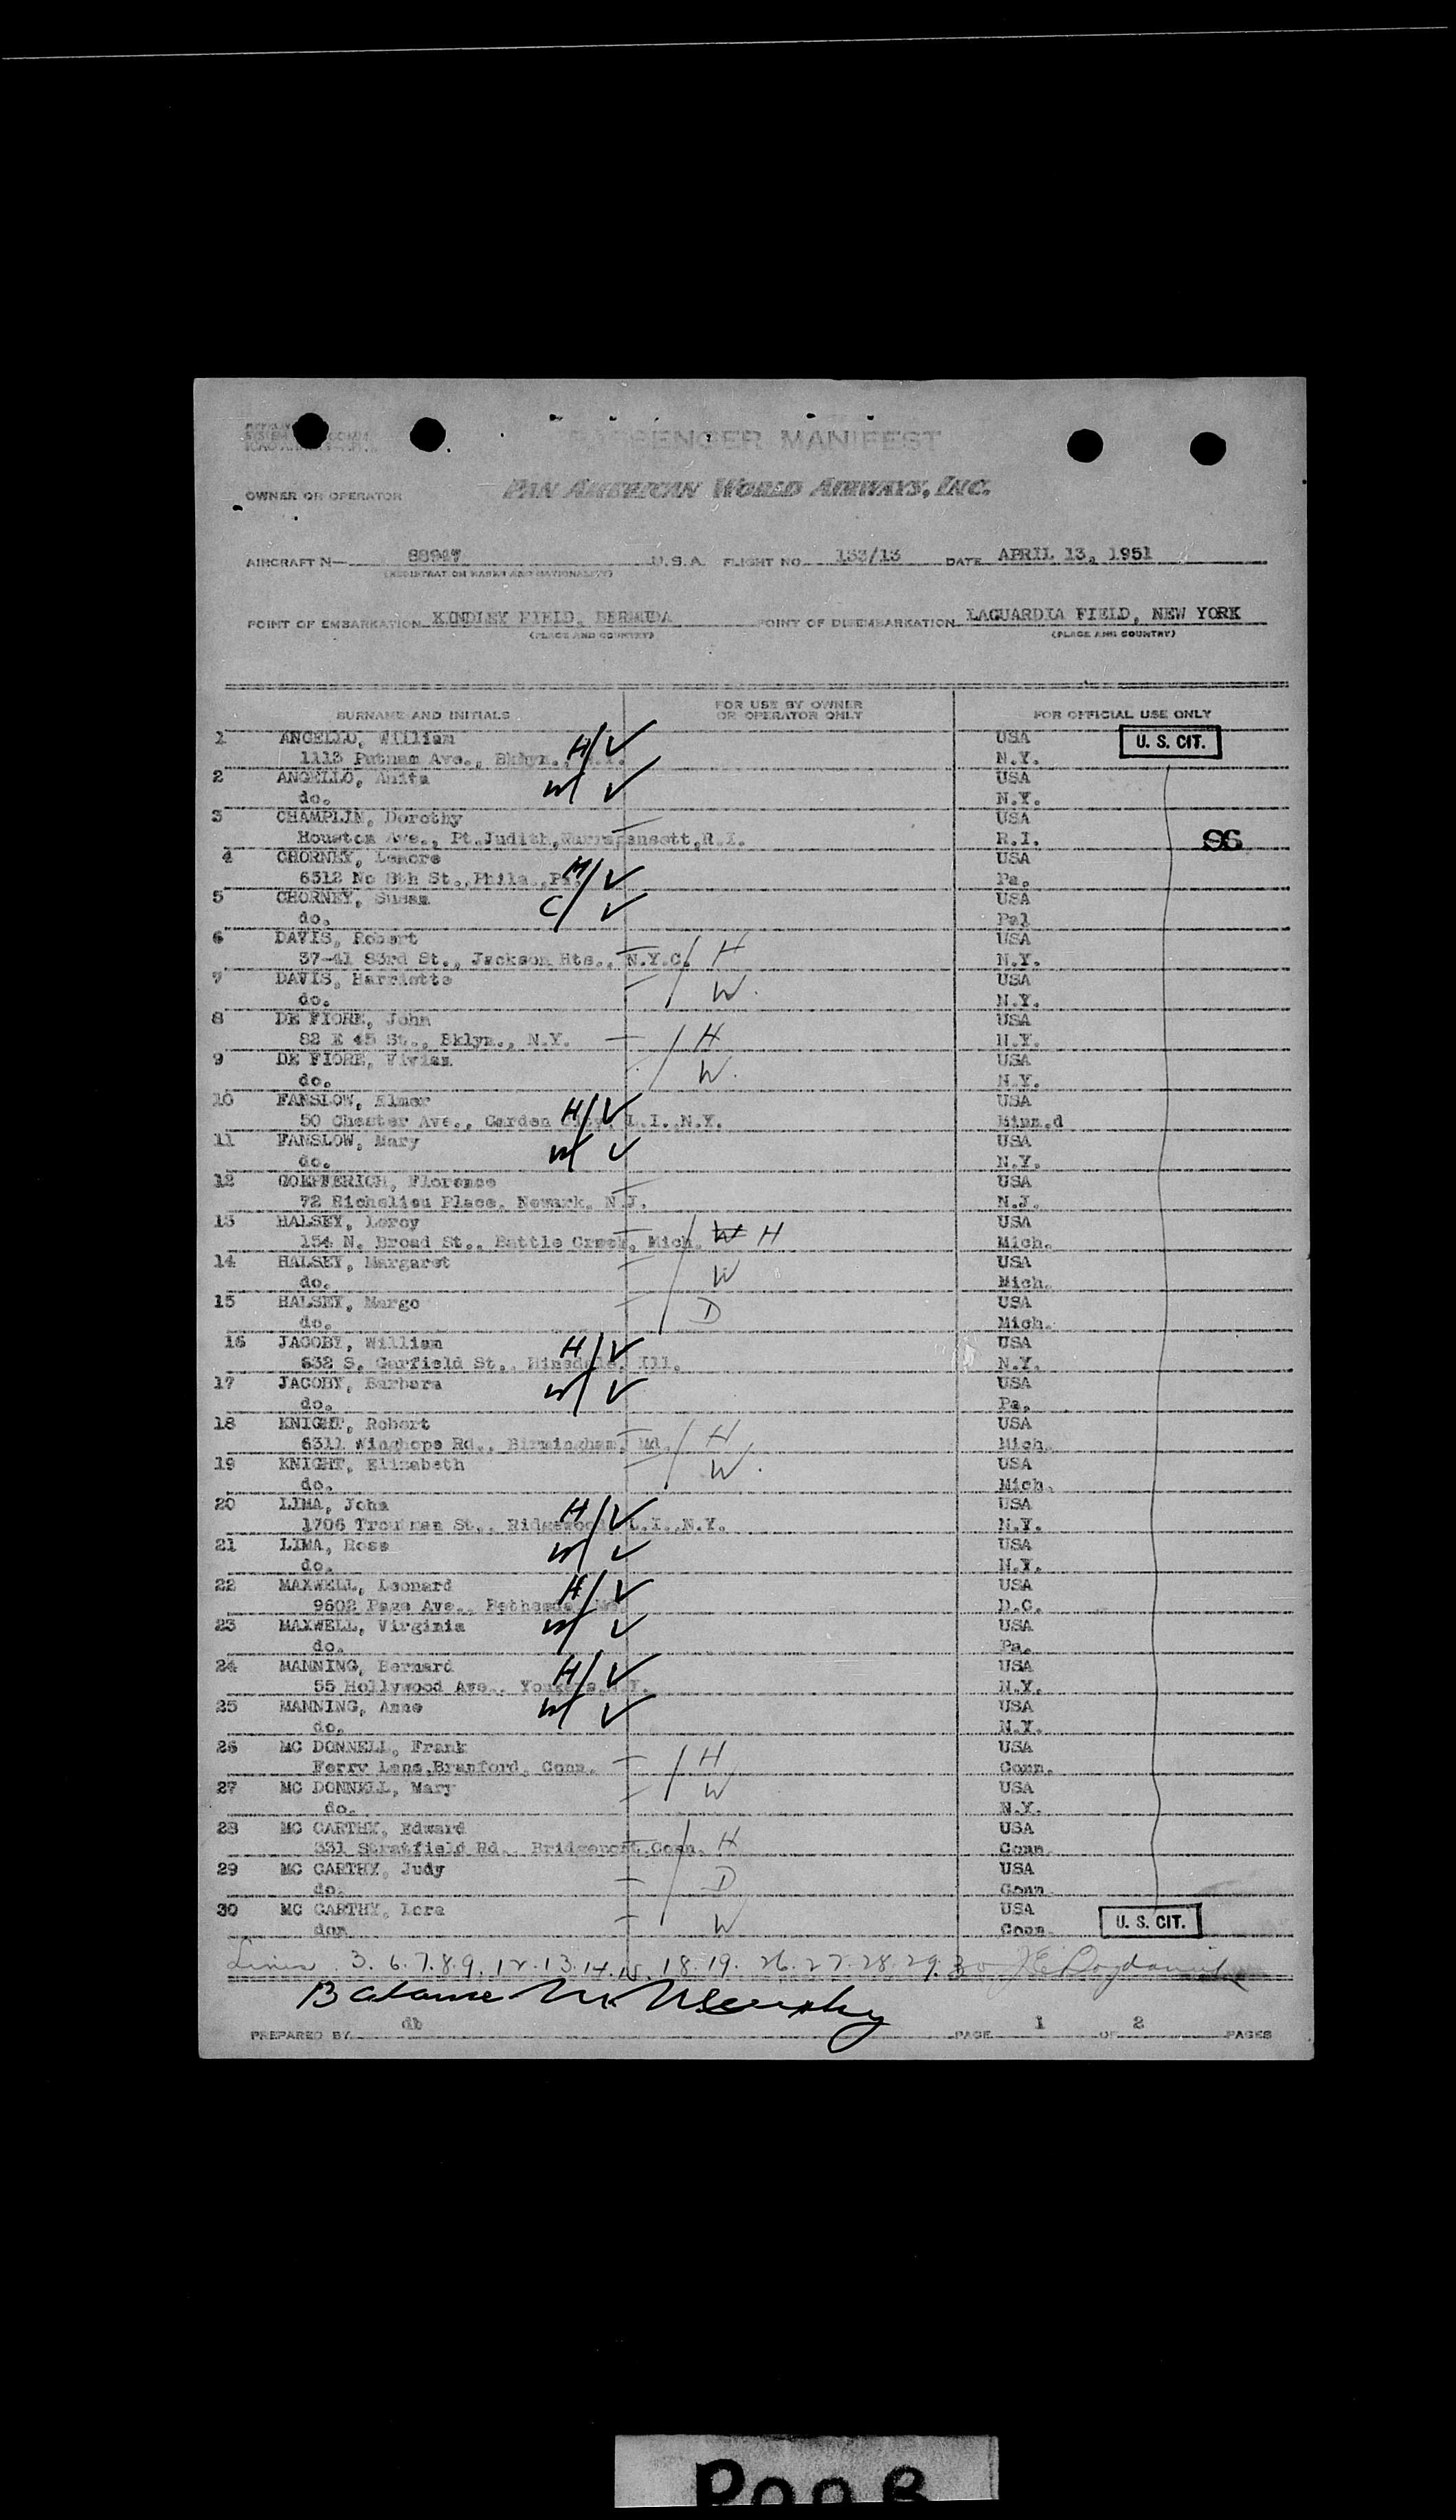 PASSENGER MANIFEST
OWNER OR OPERATOR
PAN AMERICAN WORLD AIRWAYS, INC.
AIRCRAFT N— U.S.A. FLIGHT NO. 133/13 DATE APRIL 13, 1951
(REGISTRATION MARKS AND NATIONALITY)
POINT OF EMBARKATION KINDLEY FIELD, BERMUDA POINT OF DISEMBARKATION LAGUARDIA FIELD, NEW YORK
(PLACE AND COUNTRY) (PLACE AND COUNTRY)
SURNAME AND INITIALS FOR USE BY OWNER OR OPERATOR ONLY FOR OFFICIAL USE ONLY
1 ANGELLO, William USA U. S. CIT.
1113 Putnam Ave., Bklyn., N.Y. H/ N.Y.
2 ANGELLO, Anita USA
do. W/ N.Y.
3 CHAMPLIN, Dorothy USA
Houston Ave., Pt.Judith,Narragansett,R.I. R.I. 96
4 CHORNEY, Lenore USA
6512 No 8th St.,Phila.,Pa. M/ Pa.
5 CHORNEY, Susan USA
do. C/ Pal
6 DAVIS, Robert USA
37-41 83rd St., Jackson Hts., N.Y.C. H N.Y.
7 DAVIS, Harriette USA
do. W. N.Y.
8 DE FIORE, John USA
82 E 45 St., Bklyn., N.Y. H N.Y.
9 DE FIORE, Vivian USA
do. W. N.Y.
10 FANSLOW, Elmer USA
50 Chester Ave., Garden City, L.I.,N.Y. H/ Minn.d
11 FANSLOW, Mary USA
do. W/ N.Y.
12 GOEPFERICH, Florence USA
72 Richelieu Place, Newark, N.J. N.J.
13 HALSEY, Leroy USA
154 N. Broad St., Battle Creek, Mich. W H Mich.
14 HALSEY, Margaret USA
do. W Mich.
15 HALSEY, Margo USA
do. D Mich.
16 JACOBY, William USA
632 S. Garfield St., Hinsdale, Ill. H/ N.Y.
17 JACOBY, Barbara USA
do. W/ Pa.
18 KNIGHT, Robert USA
6311 Winghope Rd., Birmingham, Md. H Mich.
19 KNIGHT, Elizabeth USA
do. W. Mich.
20 LIMA, John USA
1706 Troutman St., Ridgewood, L.I.,N.Y. H/ N.Y.
21 LIMA, Rose USA
do. W/ N.Y.
22 MAXWELL, Leonard USA
9602 Page Ave., Bethesda, Md. H/ D.C.
23 MAXWELL, Virginia USA
do. W/ Pa.
24 MANNING, Bernard USA
55 Hollywood Ave., Yonkers,N.Y. H/ N.Y.
25 MANNING, Anne USA
do. W/ N.Y.
26 MC DONNELL, Frank USA
Ferry Lane,Branford, Conn. H Conn.
27 MC DONNELL, Mary USA
do. W N.Y.
28 MC CARTHY, Edward USA
331 Stratfield Rd., Bridgeport,Conn. H Conn.
29 MC CARTHY, Judy USA
do. D Conn.
30 MC CARTHY, Lora USA U. S. CIT.
do. W Conn.
Lines 3. 6. 7. 8. 9. 12. 13. 14. 15. 18. 19. 26. 27. 28. 29. 30
Balance
PREPARED BY db PAGE 1 OF 2 PAGES